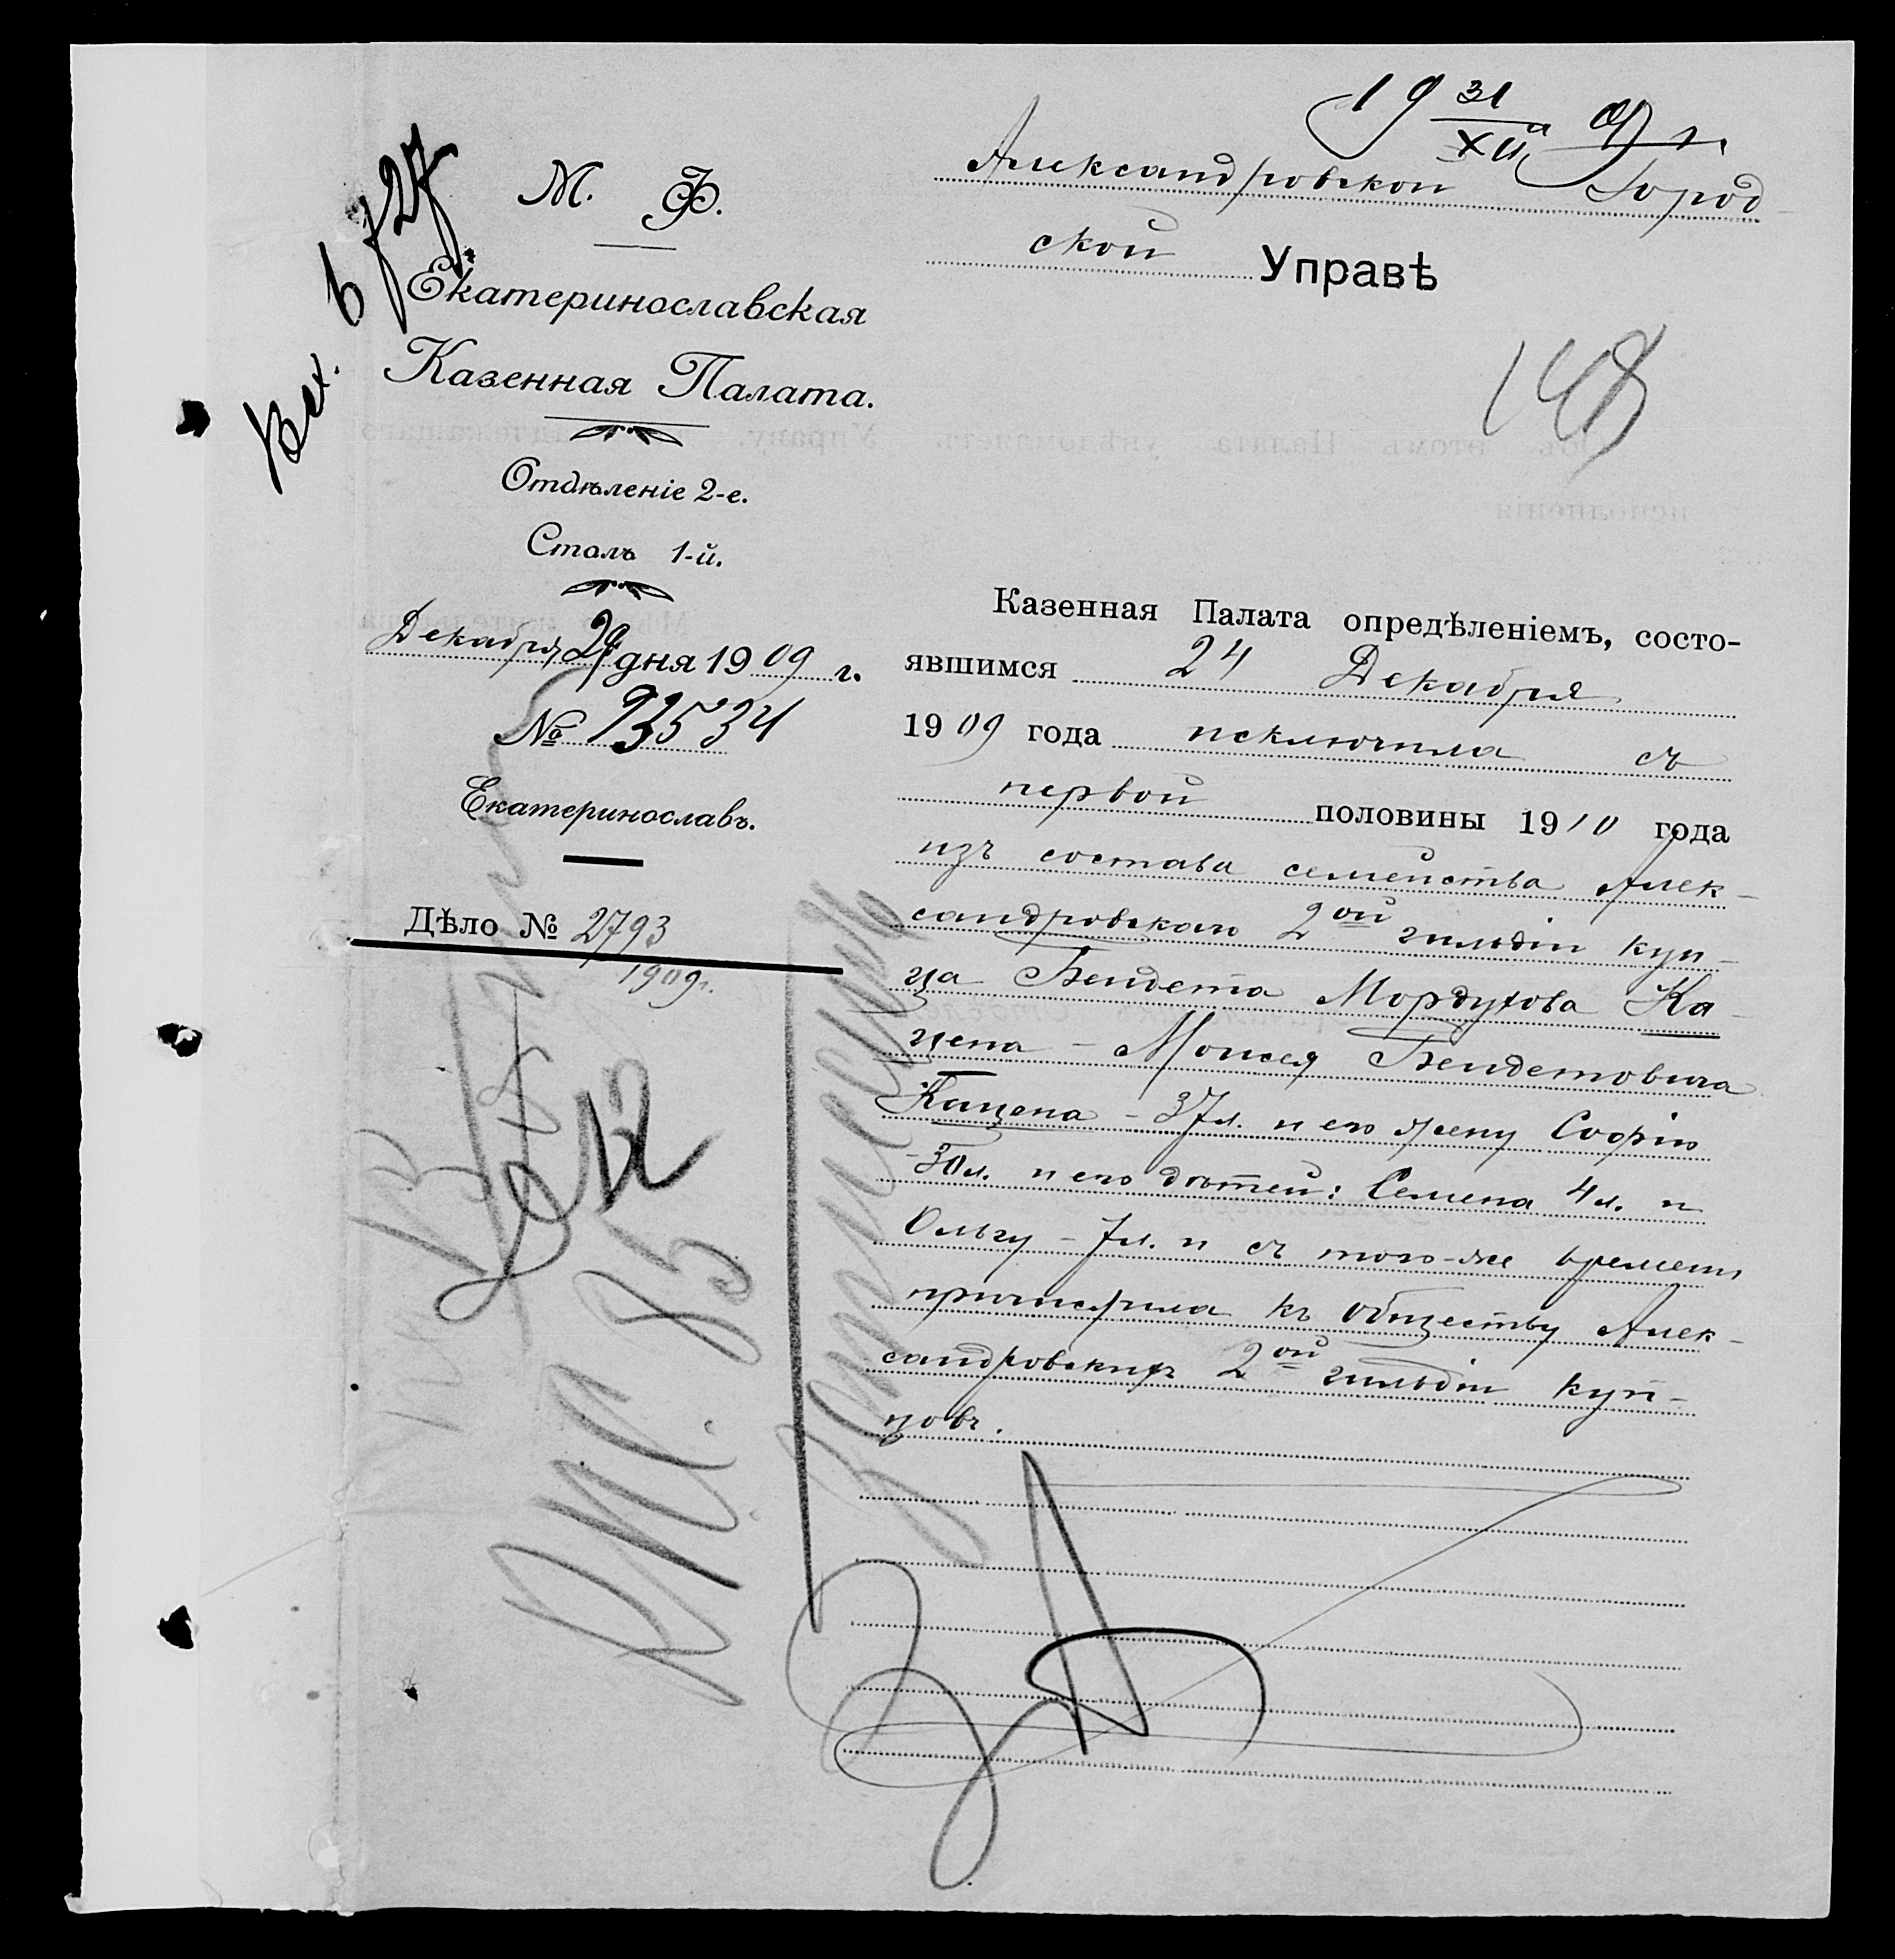 19 31/XII 09 г.
Вх. 6727
М. Ф.
Екатеринославская
Казенная Палата.
Отдѣленіе 2-е.
Столъ 1-й.
Декабря 29 дня 1909 г.
№ 93534
Екатеринославъ.
Дѣло № 2793
1909 г.
Александровской Город-
ской Управѣ
148
Казенная Палата опредѣленіемъ, состо-
явшимся 24 Декабря
1909 года исключила съ
первой половины 1910 года
изъ состава семейства Алек-
сандровскаго 2ой гильдіи куп-
ца Бендета Мордухова Ка-
цена - Моисея Бендетовича
Кацена - 37 л. и его жену Софію
- 30 л. и его дѣтей: Семена 4 л. и
Ольгу - 7 л. и съ того-же времени
причислила къ обществу Алек-
сандровскихъ 2ой гильдіи куп-
цовъ.